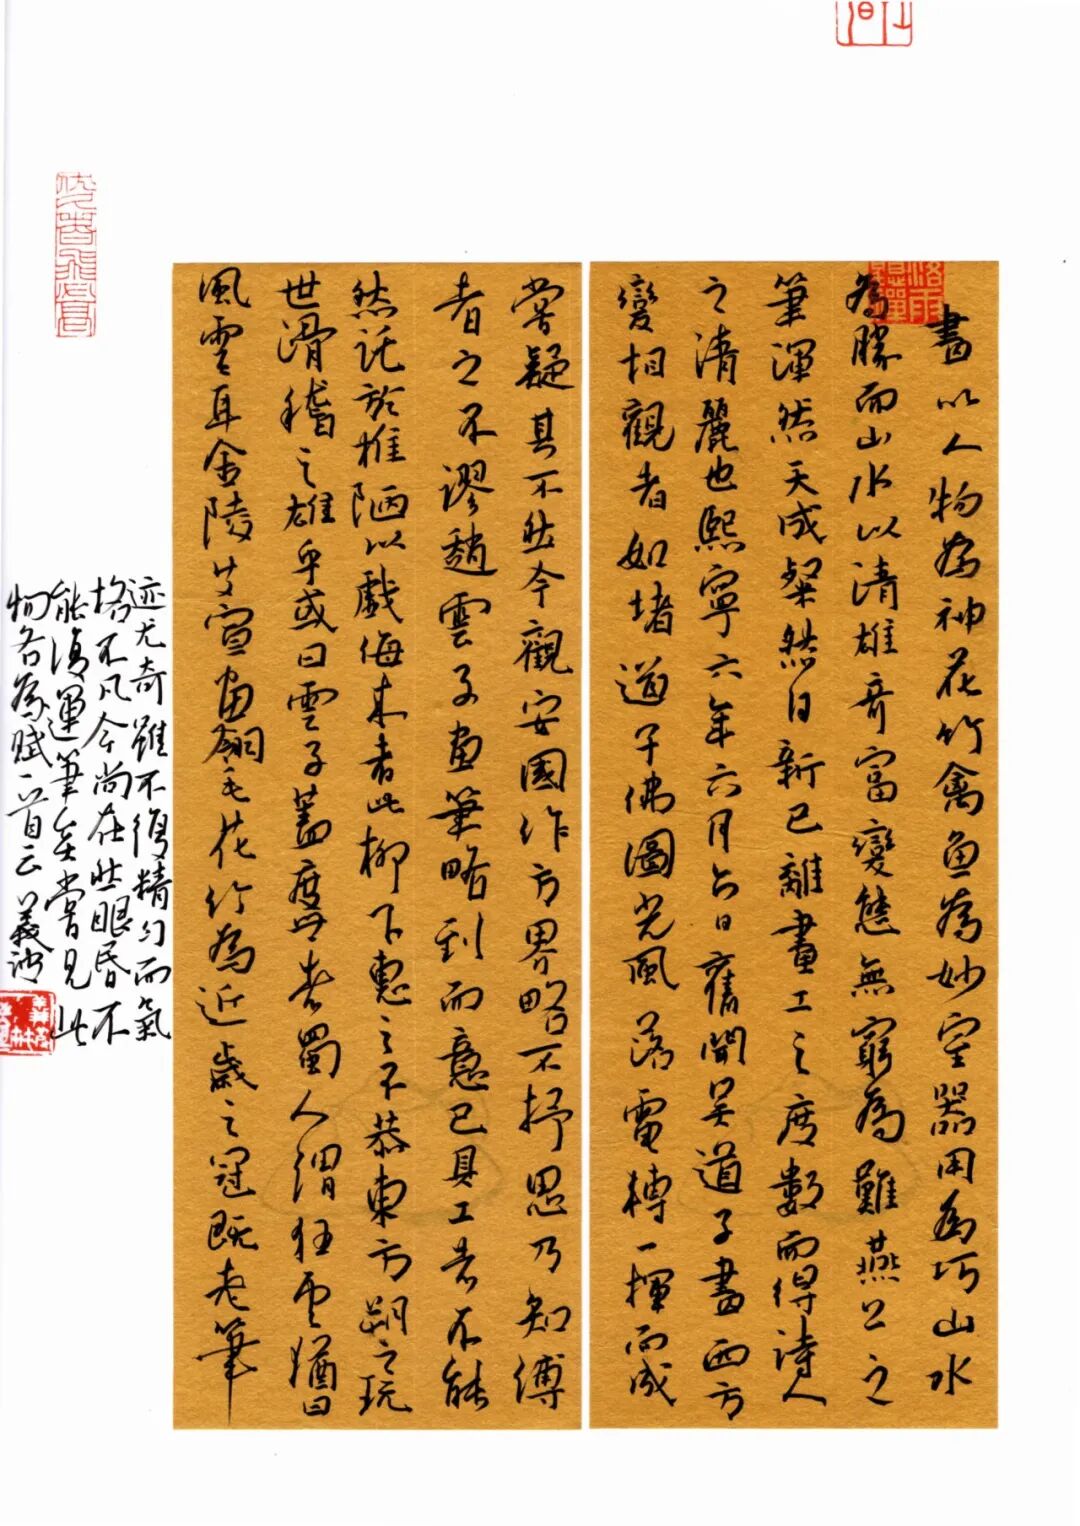 畫以人物為神花竹禽魚為妙宮器用為巧山水
為勝而山水以清雄奇富變態無窮為難燕公之
筆渾然天成粲然日新已離畫工之度數而得詩人
之清麗也熙寧六年六月六日舊聞吳道子畫西方
變相觀者如堵道子佛圖光風落電轉一揮而成
嘗疑其不然今觀安國作方界略不抒思乃知傳
者之不謬趙雲子畫筆略到而意已具工者不能
然託於椎陋以戲侮來者此柳下惠之不恭東方朔之玩
世滑稽之雄乎或曰雲子蓋度世者蜀人謂狂雲猶曰
風雲耳金陵艾宣畫翎毛花竹為近歲之冠既老筆
迹尤奇雖不復精勻而氣
格不凡今尚在然眼昏不
能復運筆矣嘗見此
物各為賦一首云